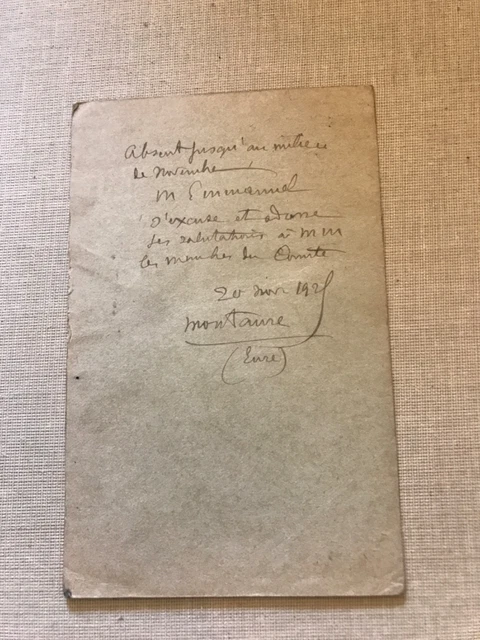 Absent jusqu'au milieu
de Novembre
M Emmanuel
s'excuse et adresse
ses salutations à MM
les membres du Comité
20 192
Montaure
(Eure)